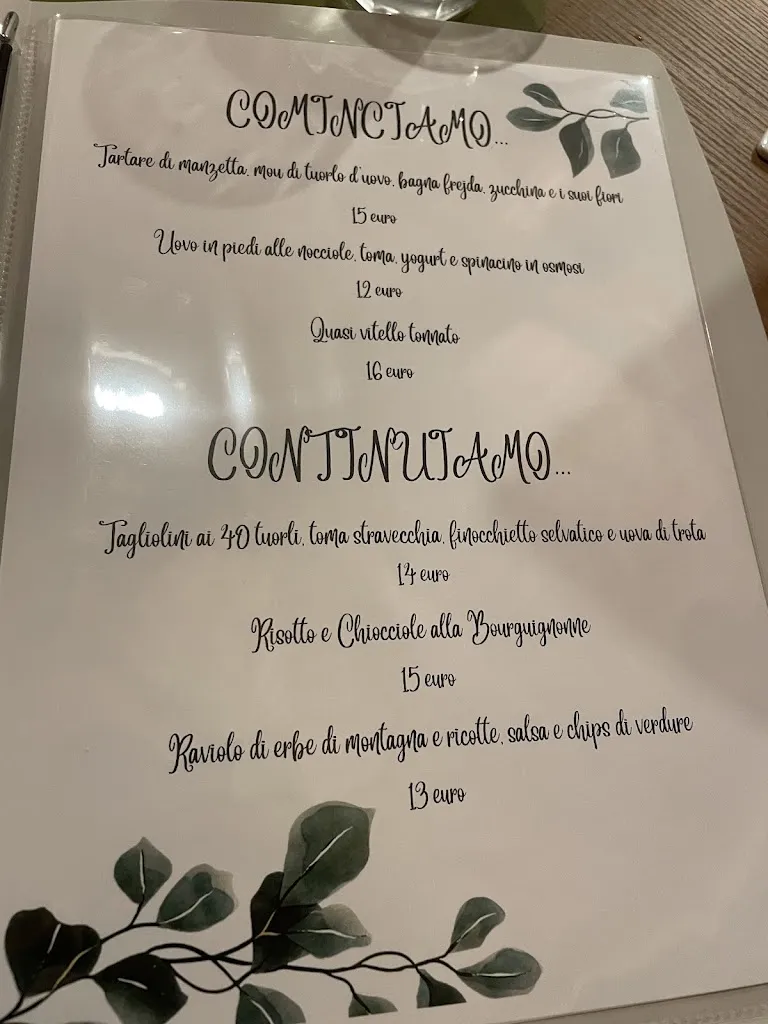 COMINCIAMO...
Tartare di manzetta, mou di tuorlo d'uovo, bagna frejda, zucchina e i suoi fiori
15 euro
Uovo in piedi alle nocciole, toma, yogurt e spinacino in osmosi
12 euro
Quasi vitello tonnato
16 euro
CONTINUIAMO...
Tagliolini ai 40 tuorli, toma stravecchia, finocchietto selvatico e uova di trota
14 euro
Risotto e Chiocciole alla Bourguignonne
15 euro
Raviolo di erbe di montagna e ricotte, salsa e chips di verdure
13 euro